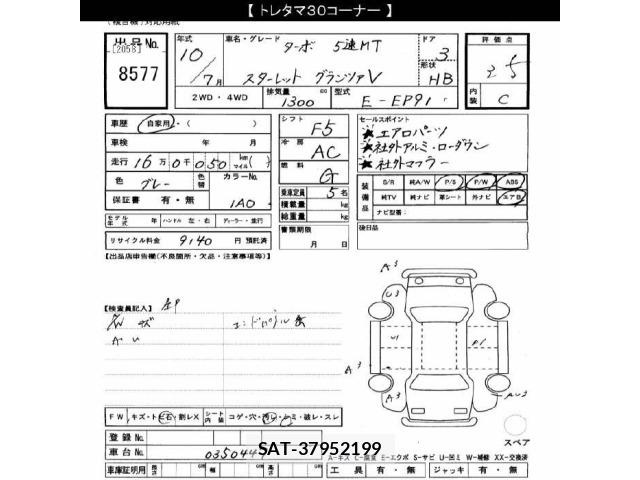 【 トレタマ30コーナー 】
出品No. 年式 車名・グレード ターボ 5速MT ドア 評価点
[2058] 10 3
8577 /7月 スターレット グランツァV 形状 HB 内装 C
2WD・4WD 排気量 1300 cc 型式 E-EP91
車歴 自家用・( ) シフト F5 セールスポイント
★エアロパーツ
車検 年 月 冷房 AC ★社外アルミ・ローダウン
走行 16万0千050 km マイル( ) 燃料 G ★社外マフラー
色 グレー 色替 カラーNo. 1A0 乗車定員 5名 装備品 S/R 純A/W P/S P/W ABS
保証書 有・無 積載量 kg 純TV 純ナビ 革シート 外ナビ エアB
総重量 kg ナビ型番:
モデル年式 年 ハンドル 左・右 ディーラー・並行 書類期限 後日品
リサイクル料金 9140 円 預託済 月 日
【出品店申告欄(不良箇所・欠品・注意事項等)】
【検査員記入】
A3
U3
U1
A3
A3
FW キズ・トビ石・割レX シート内装 コゲ・穴・汚レ・シミ・破レ・スレ
登録No.
スペア
車台No. 035044
SAT-37952199
車庫証明用 長さ cm 幅 cm 高さ cm 工具 有・無 ジャッキ 有・無